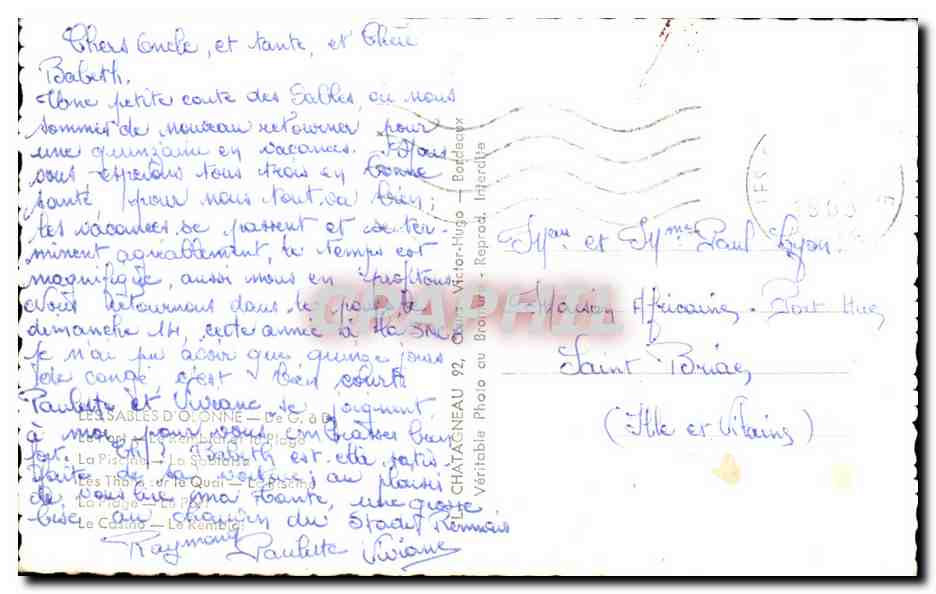 Chers Oncle, et tante, et Chère
Babeth.
Une petite carte des Sables, où nous
sommes de nouveau retourner pour
une quinzaine en vacances. Nous
vous espérons tous trois en bonne
santé, pour nous tout va bien;
les vacances se passent et se ter-
minent agréablement, le temps est
magnifique, aussi nous en profitons
Nous retournons dans le
dimanche 14, cette année à la
Je n'ai pu avoir que quinze jours
de congé, c'est bien courte
Paulette et Viviane se joignent
à moi pour vous embrasser bien
fort. Babeth est-elle satis-
faite de sa au plaisir
de vous lire ma tante, une grosse
bise au du Stade Rennais
Raymond Paulette Viviane
LES SABLES D'OLONNE — De G. à D.
Le Port — Le Remblai et la Plage
La Piscine — La Sablaise
Les Thoniers sur le Quai — La Piscine
La Plage — Le Port
Le Casino — Le Remblai
CHATAGNEAU 92, Cours Victor-Hugo — Bordeaux
Véritable Photo au Bromure - Reprod. Interdite
Mr et Mme Paul Lyon.
Maison Africaine. Port Hue
Saint Briac
(Ille et Vilaine)
CPAPHIL